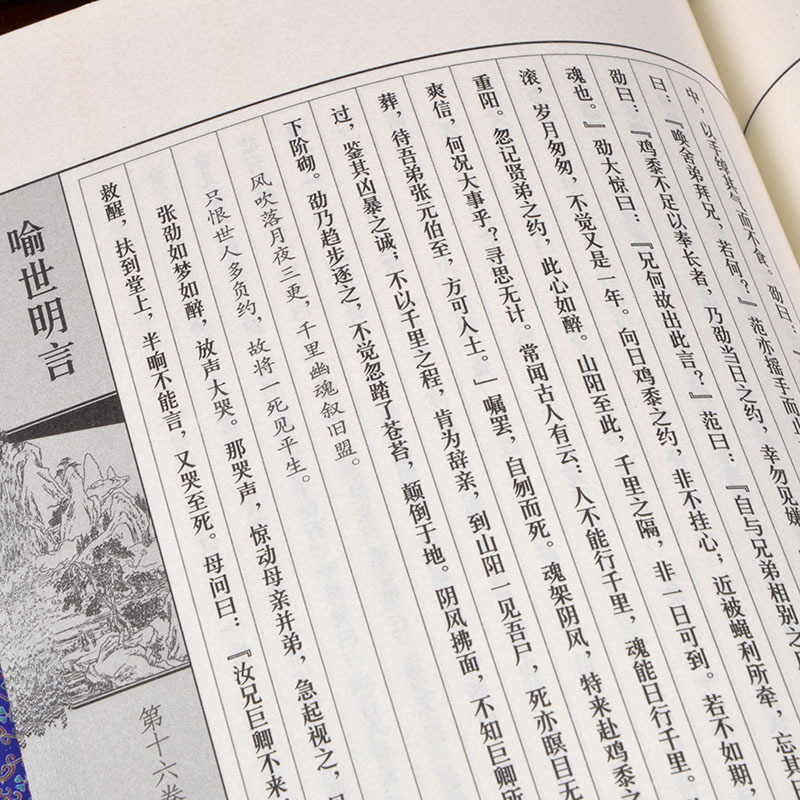 中，以手绰其气而不食。劭曰：『
曰：『唤舍弟拜兄，若何？』范亦摇手而止
劭曰：『鸡黍不足以奉长者，乃劭当日之约，幸勿见嫌
魂也。』劭大惊曰：『兄何故出此言？』范曰：『自与兄弟相别之
滚，岁月匆匆，不觉又是一年。向日鸡黍之约，非不挂心；近被蝇利所牵，忘其日
重阳。忽记贤弟之约，此心如醉。山阳至此，千里之隔，非一日可到。若不如期，
爽信，何况大事乎？寻思无计。常闻古人有云：人不能行千里，魂能日行千里。
葬，待吾弟张元伯至，方可入土。』嘱罢，自刎而死。魂架阴风，特来赴鸡黍之
过，鉴其凶暴之诚；不以千里之程，肯为辞亲，到山阳一见吾尸，死亦瞑目无
下阶砌。劭乃趋步逐之，不觉忽踏了苍苔，颠倒于地。阴风拂面，不知巨卿所
风吹落月夜三更，千里幽魂叙旧盟。
只恨世人多负约，故将一死见平生。
张劭如梦如醉，放声大哭。那哭声，惊动母亲并弟，急起视之，
救醒，扶到堂上，半晌不能言，又哭至死。母问曰：『汝兄巨卿不来，
喻世明言
第十六卷